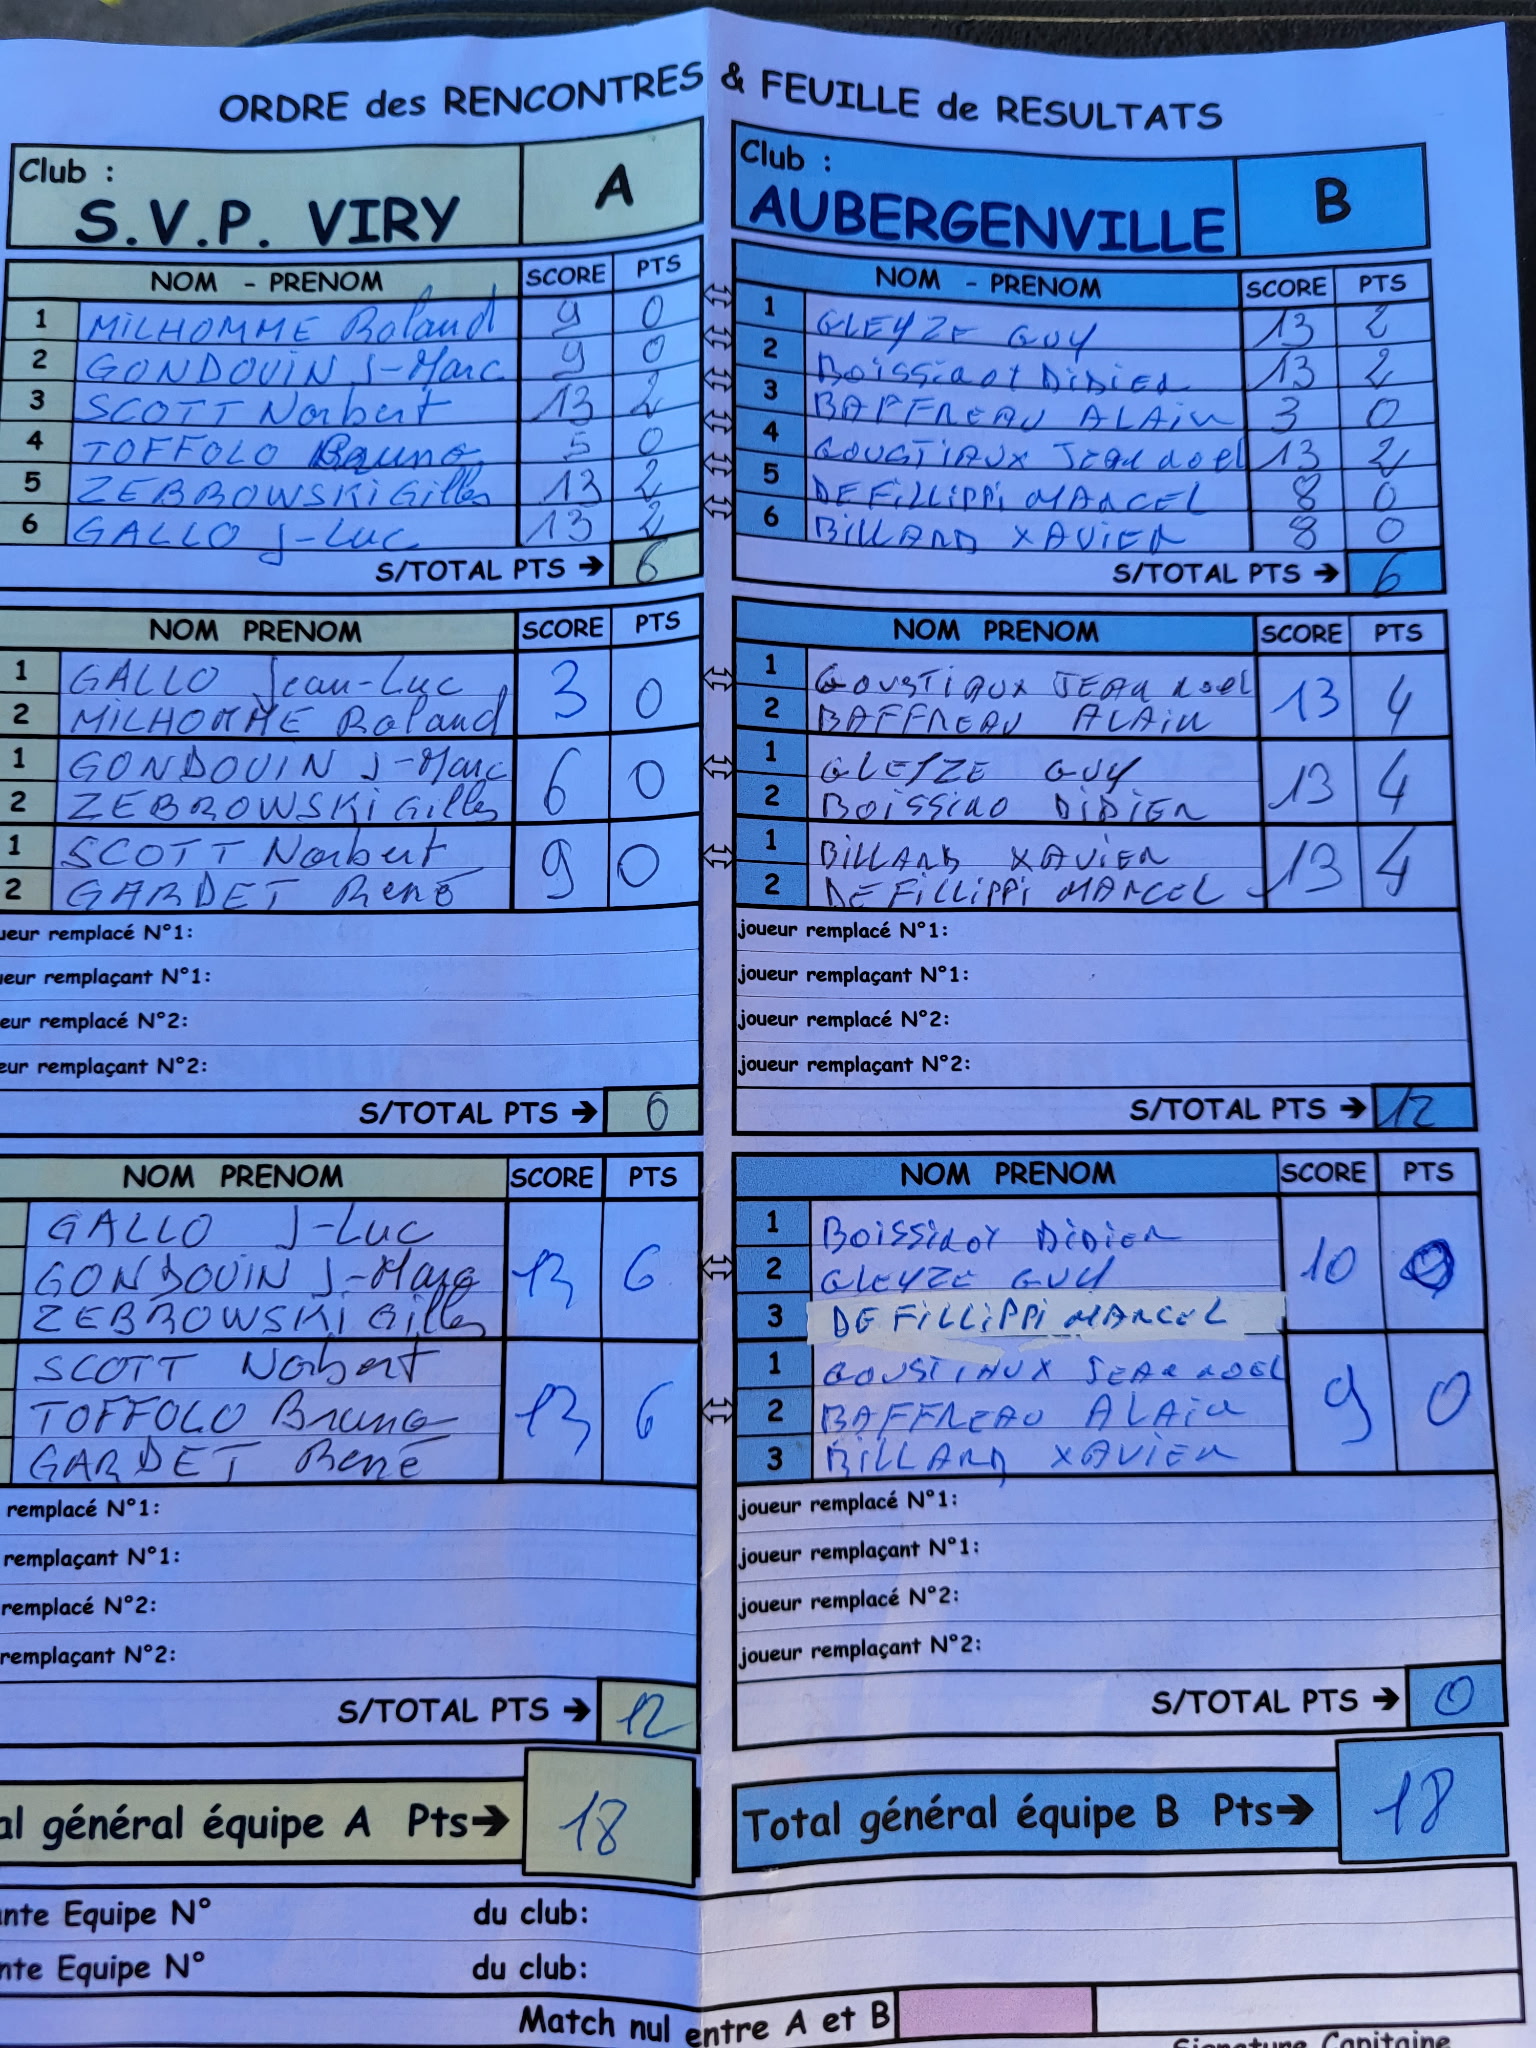 ORDRE des RENCONTRES & FEUILLE de RESULTATS
Club :
S.V.P. VIRY
A
NOM - PRENOM SCORE PTS
1 MILHOMME Roland 9 0
2 GONDOUIN J-Marc 9 0
3 SCOTT Norbert 13 2
4 TOFFOLO Bruno 5 0
5 ZEBROWSKI Gilles 13 2
6 GALLO J-Luc 13 2
S/TOTAL PTS → 6
NOM PRENOM SCORE PTS
1 GALLO Jean-Luc 3 0
2 MILHOMME Roland
1 GONDOUIN J-Marc 6 0
2 ZEBROWSKI Gilles
1 SCOTT Norbert 9 0
2 GARDET René
ueur remplacé N°1:
ueur remplaçant N°1:
eur remplacé N°2:
eur remplaçant N°2:
S/TOTAL PTS → 0
NOM PRENOM SCORE PTS
GALLO J-Luc
GONDOUIN J-Marc 13 6
ZEBROWSKI Gilles
SCOTT Norbert
TOFFOLO Bruno 13 6
GARDET René
remplacé N°1:
remplaçant N°1:
remplacé N°2:
remplaçant N°2:
S/TOTAL PTS → 12
al général équipe A Pts→ 18
Club :
AUBERGENVILLE
B
NOM - PRENOM SCORE PTS
1 GLEYZE GUY 13 2
2 BOISSINOT DIDIER 13 2
3 BAFFREAU ALAIN 3 0
4 GOUSTIAUX JEAN NOEL 13 2
5 DEFILLIPPI MARCEL 8 0
6 BILLARD XAVIER 8 0
S/TOTAL PTS → 6
NOM PRENOM SCORE PTS
1 GOUSTIAUX JEAN NOEL 13 4
2 BAFFREAU ALAIN
1 GLEYZE GUY 13 4
2 BOISSINO DIDIER
1 BILLARD XAVIER 13 4
2 DEFILLIPPI MARCEL
joueur remplacé N°1:
joueur remplaçant N°1:
joueur remplacé N°2:
joueur remplaçant N°2:
S/TOTAL PTS → 12
NOM PRENOM SCORE PTS
1 BOISSINOT DIDIER
2 GLEYZE GUY 10 0
3 DEFILLIPPI MARCEL
1 GOUSTIAUX JEAN NOEL
2 BAFFREAU ALAIN 9 0
3 BILLARD XAVIER
joueur remplacé N°1:
joueur remplaçant N°1:
joueur remplacé N°2:
joueur remplaçant N°2:
S/TOTAL PTS → 0
Total général équipe B Pts→ 18
ante Equipe N° du club:
nte Equipe N° du club:
Match nul entre A et B
Signature Capitaine